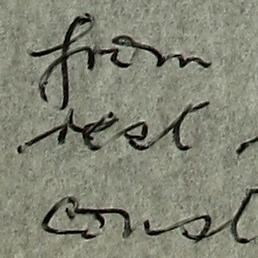 from
rest
const